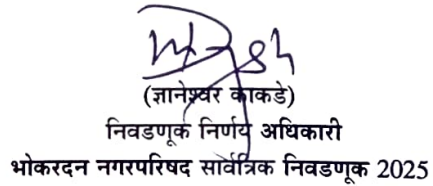 (ज्ञानेश्वर काकडे)
निवडणूक निर्णय अधिकारी
भोकरदन नगरपरिषद सार्वत्रिक निवडणूक 2025